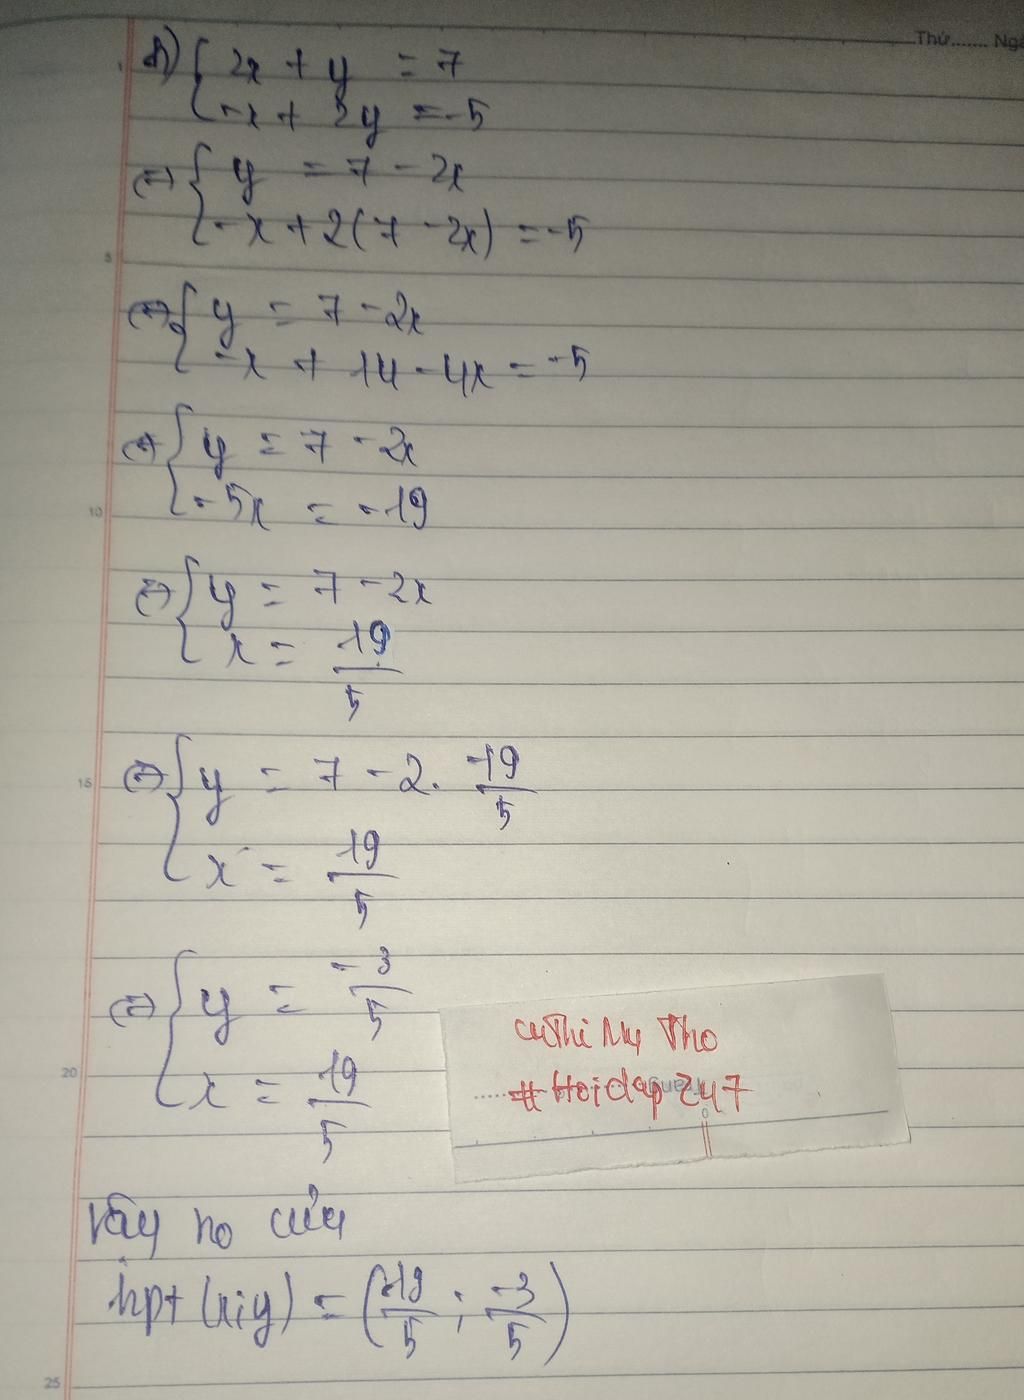 Thứ....... Ngà
h) { 2x + y = 7
-x + 2y = -5
(=) { y = 7 - 2x
-x + 2(7 - 2x) = -5
5
(=) { y = 7 - 2x
-x + 14 - 4x = -5
(=) { y = 7 - 2x
-5x = -19
10
(=) { y = 7 - 2x
x = 19/5
(=) { y = 7 - 2. 19/5
15
x = 19/5
(=) { y = -3/5
x = 19/5
20
Thi Mỹ Tho
#Hoidap247
Vậy no của
hpt (x;y) = (19/5 ; -3/5)
25